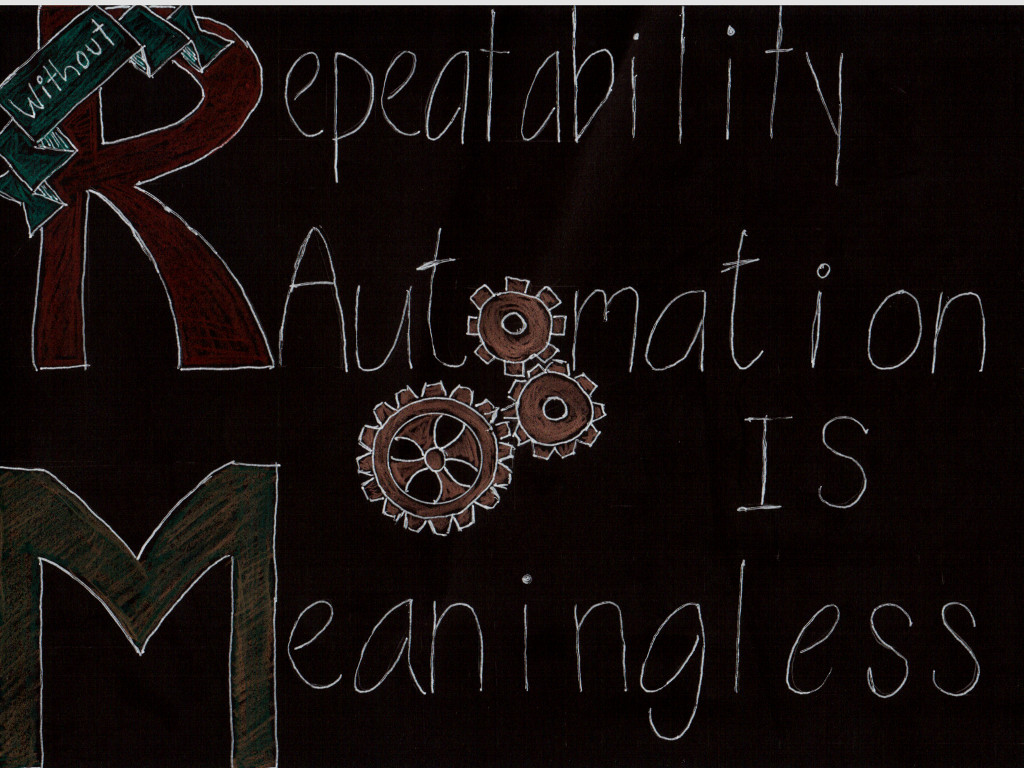 Without
Repeatability
Automation
IS
Meaningless